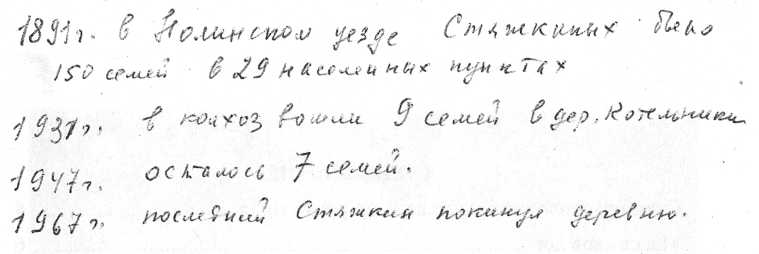 1891г. в Нолинском уезде Стяжкиных было
150 семей в 29 населенных пунктах
1931г. в колхоз вошли 9 семей в дер. Котельники
1947г. осталось 7 семей.
1967г. последний Стяжкин покинул деревню.